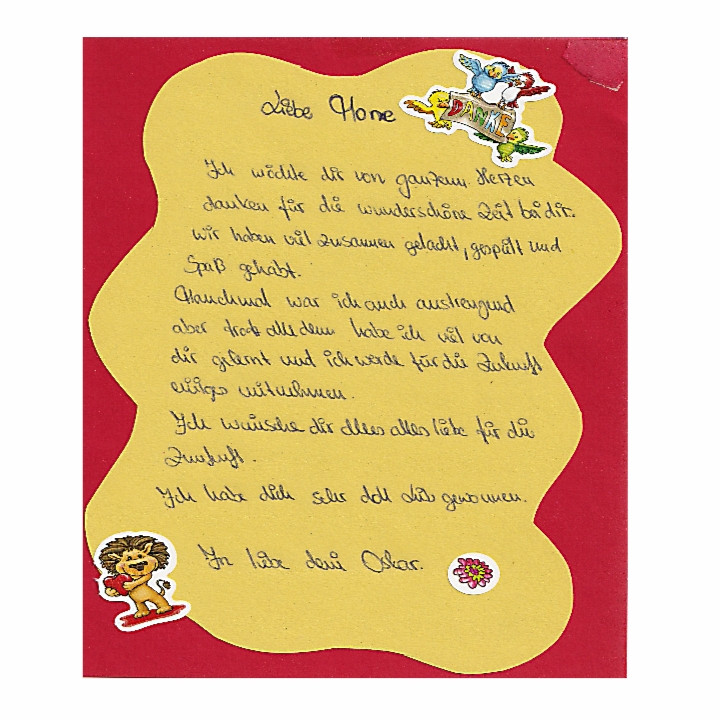 Liebe
DANKE
Ich möchte dir von ganzem Herzen
danken für die wunderschöne Zeit bei dir.
wir haben viel zusammen gelacht, gespielt und
Spaß gehabt.
Manchmal war ich auch anstrengend
aber trotz alledem habe ich viel von
dir gelernt und ich werde für die Zukunft
einiges mitnehmen.
Ich wünsche dir alles alles liebe für die
Zunkunft.
Ich habe dich sehr doll lieb gewonnen.
In liebe dein Oskar.